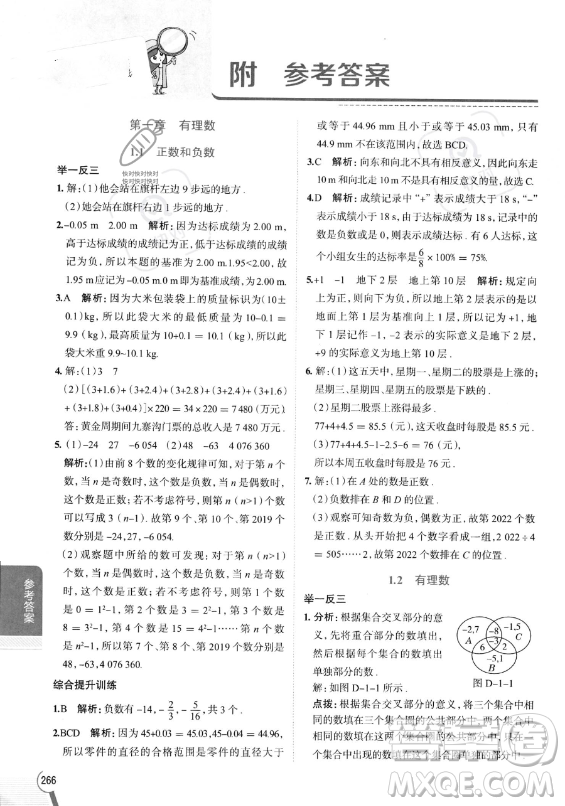 附 参考答案
第一章 有理数
1.1 正数和负数
举一反三
1. 解:(1)他会站在旗杆左边 9 步远的地方.
(2)她会站在旗杆右边 6 步远的地方.
2. -0.05 m 2.00 m 解析:因为达标成绩为 2.00 m,
高于达标成绩的成绩记为正,低于达标成绩的成绩
记为负,所以本题的基准数是 2.00 m.1.95<2.00,故
1.95 m应记为-0.05 m.0 m即表示成绩为2.00 m.
3. A 解析:因为大米包装袋上的质量标识为(10±
0.1)kg,所以此袋大米的最低质量为 10-0.1=
9.9(kg),最高质量为 10+0.1=10.1(kg),所以此
袋大米重 9.9~10.1 kg.
4. 解:(1)3 7
(2)[(3+1.6)+(3+2.4)+(3+2.8)+(3+1.6)
+(3+1.2)+(3+0.4)]×10=34×220=7 480(万元).
答:黄金周期间九寨沟门票的总收入是 7 480 万元.
5. (1)-24 27 -6 054 (2)-63 4 076 360
解析:(1)由前 8 个数的变化规律可知,对于第 n 个
数,当 n 是奇数时,这个数是负数,当 n 是偶数时,
这个数是正数;若不考虑符号,则第 n(n>1)个数
可以写成 3(n-1).故第 9 个、第 10 个、第 2019 个
数分别是-24,27,-6 054.
(2)观察题中所给的数可发现:对于第 n(n>1)
个数,当 n 是偶数时,这个数是正数,当 n 是奇数
时,这个数是负数;若不考虑符号,则第 n(n>1)个
数是 n²-1.第 8 个数和第 2019 个数分别是
8²-1=63,-(2019²-1)=-4 076 360,即
-63,4 076 360.
综合提升训练
1. B 解析:负数有-14,-2/3,-5/16,共 3 个.
2. BCD 解析:因为 45+0.03=45.03,45-0.04=44.96,
所以零件的直径的合格范围是零件的直径大于
或等于 44.96 mm 且小于或等于 45.03 mm,只有
44.9 mm 不在该范围内,故选 BCD.
3. C 解析:向东和向北不具有相反意义,而向南走
10 m和向北走 10 m 具有相反意义,故选 C.
4. D 解析:成绩记录中“+”表示成绩大于 18 s,“-”
表示成绩小于 18 s,“0”表示成绩为 18 s,记录中的
数是负数或 0,则表示达标.由于有 6 人达标,故这
个小组女生的达标率是6/8×100%=75%.
5. +1 -1 地下 2 层 地上第 10 层 解析:规定向
上为正,则向下为负,因为地面上 1 层记为 0,所以
-2 表示的实际意义是地下 2 层,+9 表示的实际意
义为地上第 10 层.
6. 解:(1)这五天中,星期一、星期二的股票是上涨的;
星期三、星期四、星期五股票是下跌的.
(2)星期二股票上涨得最多.
77+4+4.5=85.5(元),这天收盘时每股是 85.5 元.
(3)77+4+4.5-1-2.5-6=76(元),
所以本周五收盘时每股是 76 元.
7. 解:(1)在 A 处的数是正数.
(2)负数排在 B 和 D 的位置.
(3)因为奇数时为负数,偶数为正数,故第 2022 个数
是正数.从头开始将每 4 个数字看成一组,2 022÷4
=505……2,故第 2022 个数排在 C 的位置.
1.2 有理数
举一反三
1. 分析:根据集合交叉部分的意
义,将重合部分的数填出,
然后根据每个集合的意义填出
单独部分的数.
-2,7
-8
-1,5
-3
A
6
C
B
图 D-1-1
点拨:根据集合交叉部分的意义,将同时出现在
两个集合中的数填在两个集合的公共部分中,三
个集合中出现的数填在三个集合的公共部分中.
参考答案
266
快对快对快对
快对快对快对
作业帮
MXQE.COM